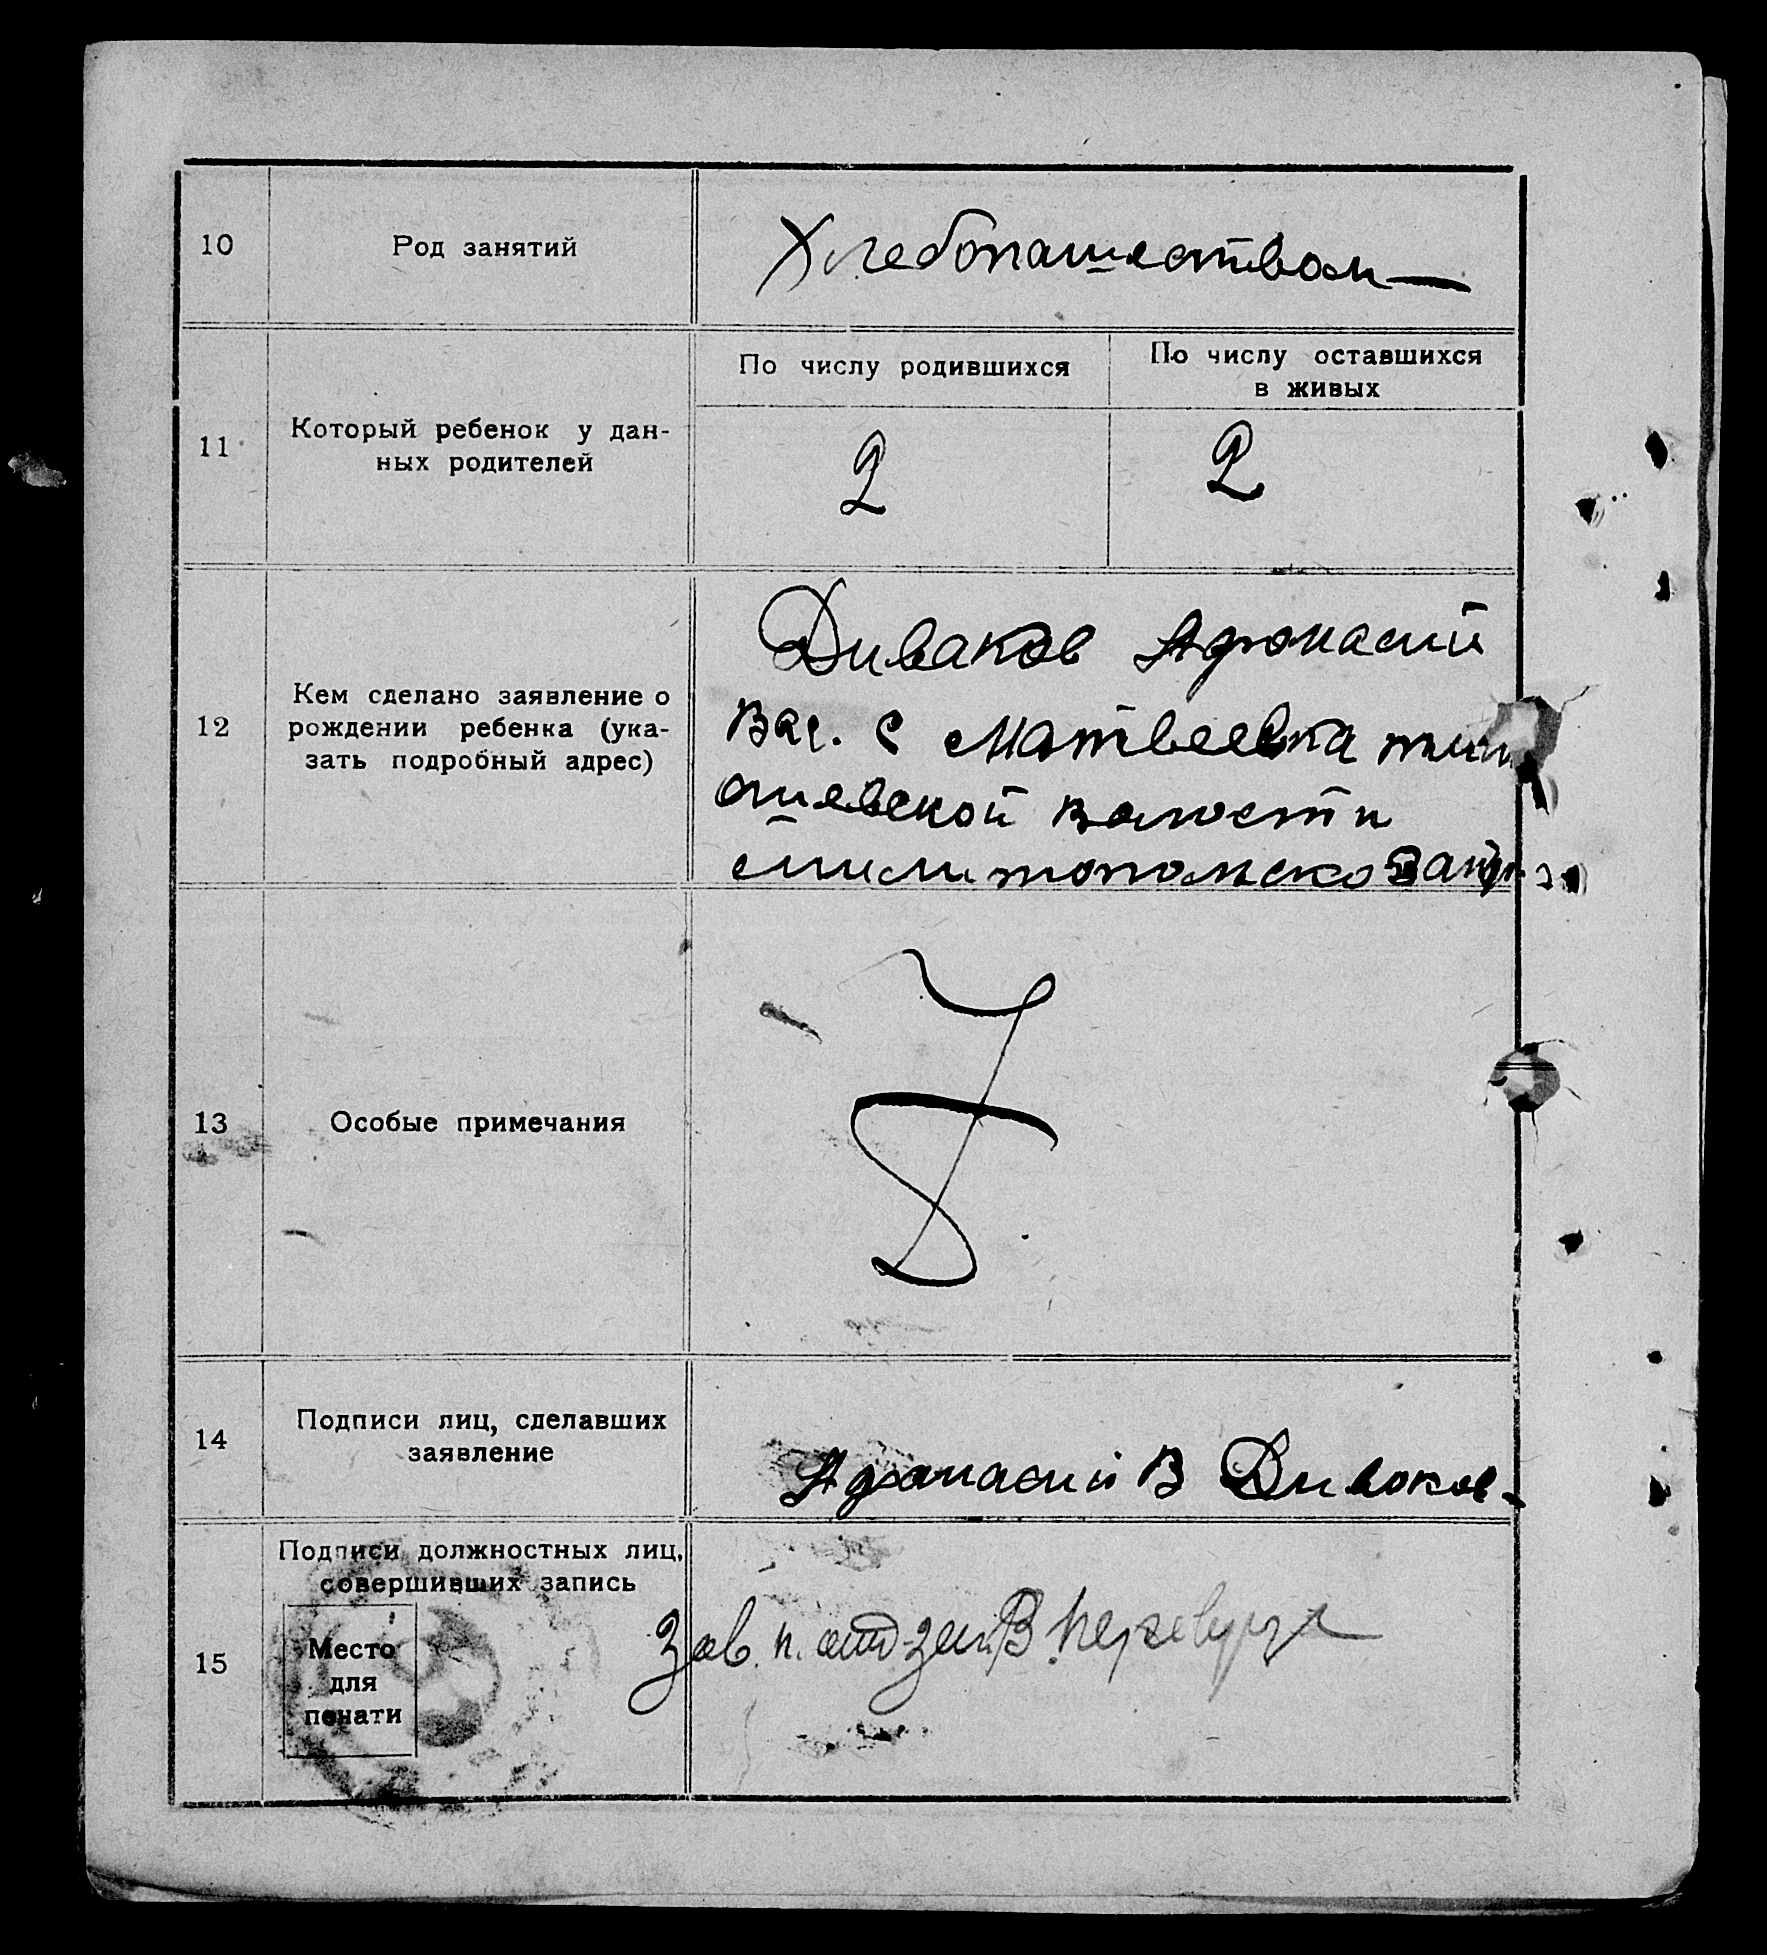 10
Род занятий
Хлебопашеством
11
Который ребенок у дан-
ных родителей
По числу родившихся
По числу оставшихся
в живых
2
2
12
Кем сделано заявление о
рождении ребенка (ука-
зать подробный адрес)
Диваков Афонасий
Вас. с Матвеевка
волости
13
Особые примечания
14
Подписи лиц, сделавших
заявление
Афонасий В Дивоков
15
Подписи должностных лиц,
совершивших запись
Место
для
печати
Зав. п.